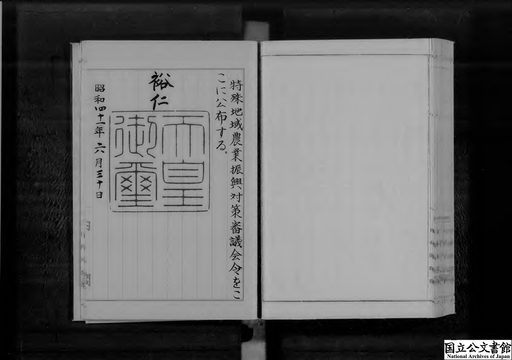 特殊地域農業振興対策審議会令をこ
こに公布する。
裕仁
天皇
御璽
昭和四十一年六月三十日
国立公文書館
National Archives of Japan